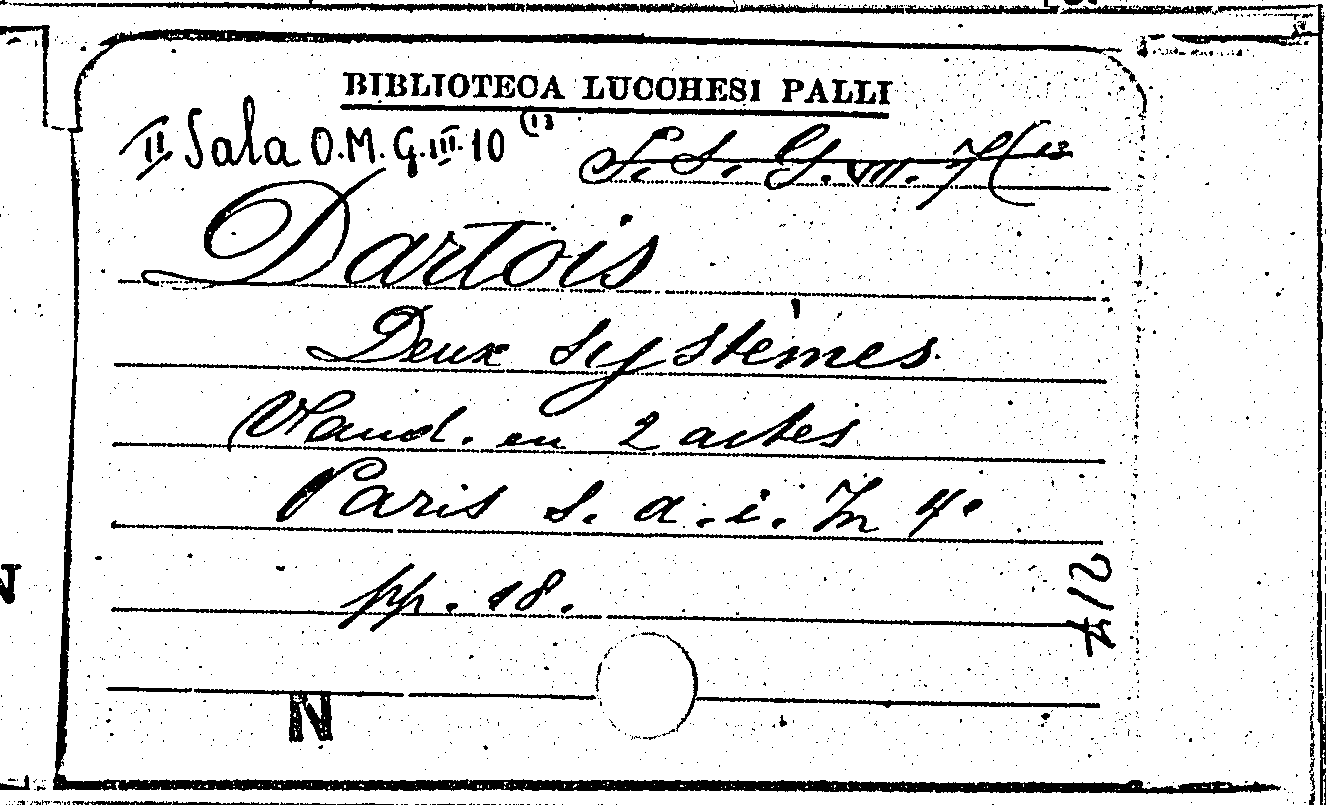 BIBLIOTECA LUCCHESI PALLI
II Sala O.M.G.III.10 (13
S. S. G. VII. 7(13
Dartois
Deux Systèmes
Vaud. en 2 actes
Paris s. a. i. In 4°
pp. 18.
N
N